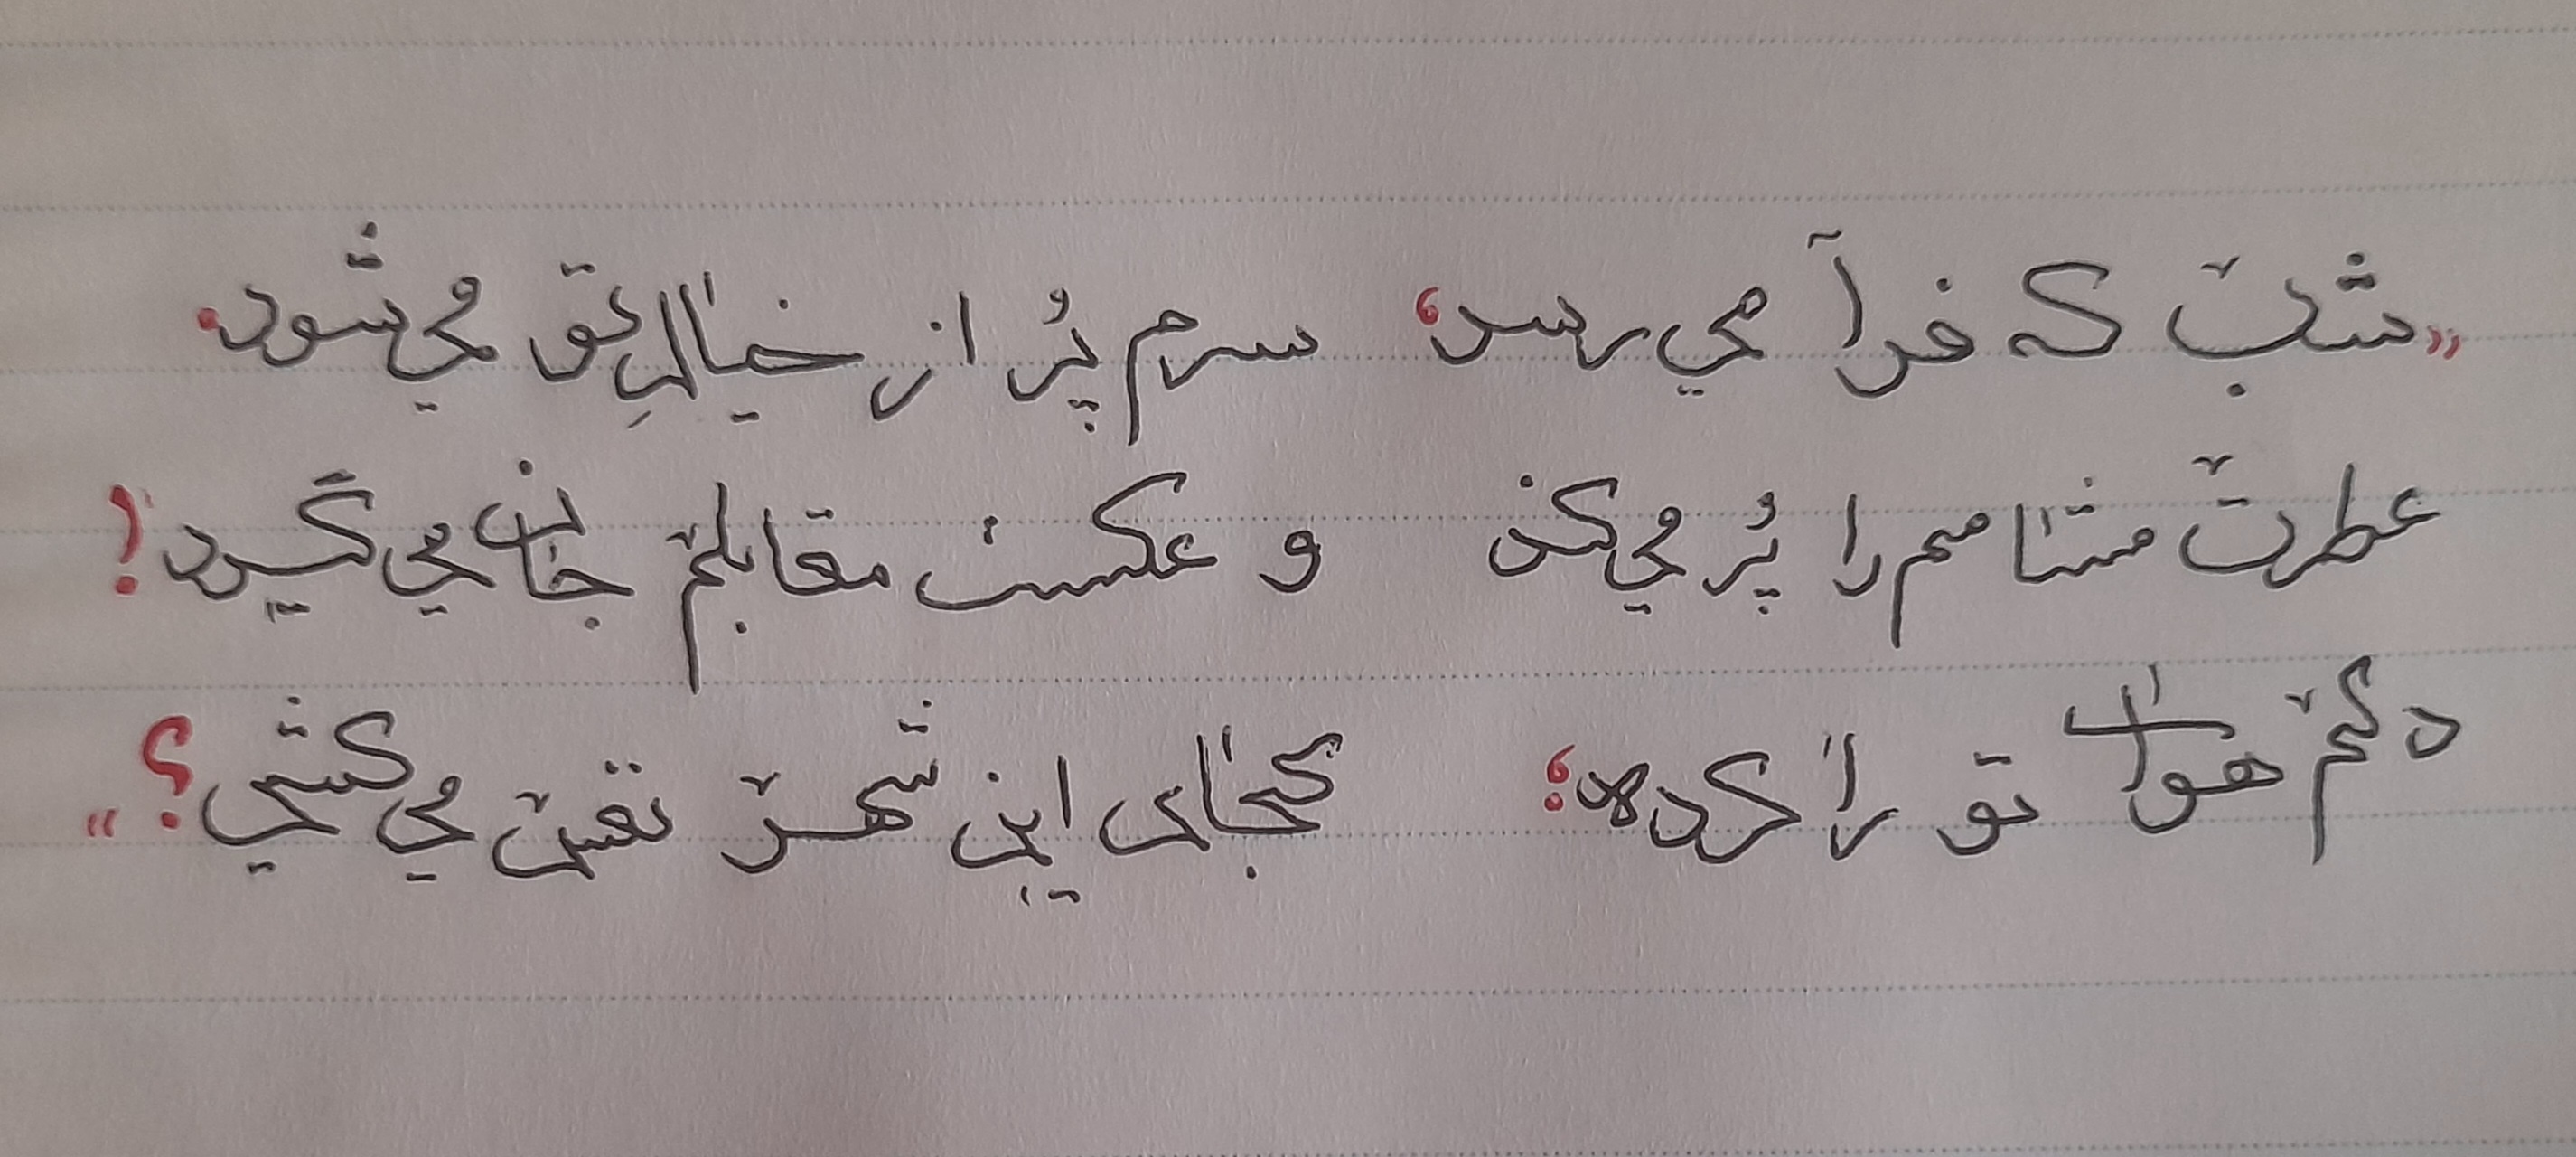 «شب که فرآ می‌رسد، سرم پُر از خیالِ تو می‌شود.
عطرت مشامم را پُر می‌کند و عکست مقابلم جان می‌گیرد!
دلم هوای تو را کرده؛ کجای این شهر نفس می‌کشی؟»